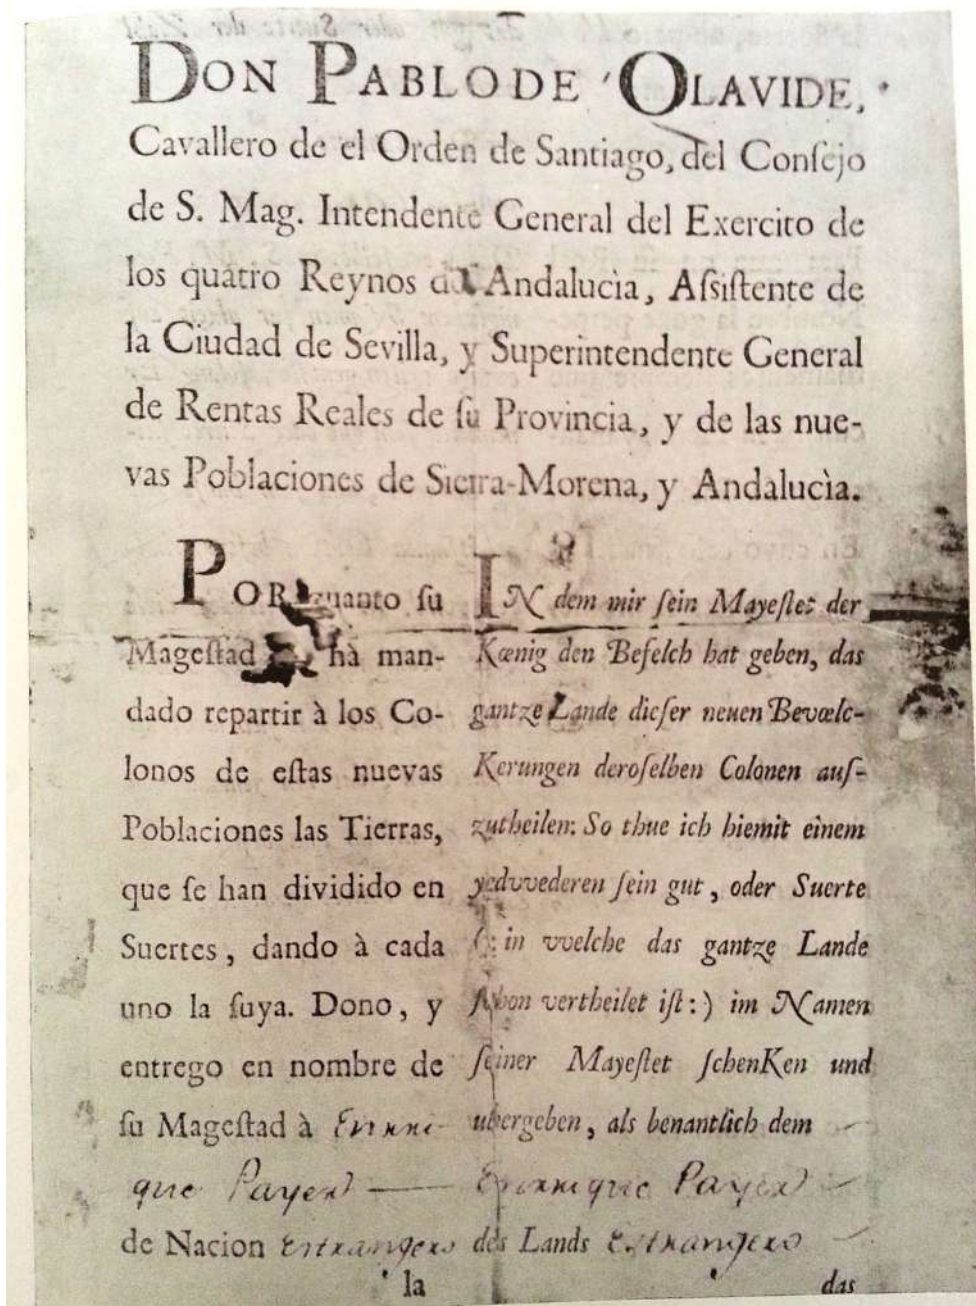 DON PABLO DE OLAVIDE,
Cavallero de el Orden de Santiago, del Conſejo
de S. Mag. Intendente General del Exercito de
los quatro Reynos Andalucìa, Aſsiſtente de
la Ciudad de Sevilla, y Superintendente General
de Rentas Reales de ſu Provincia, y de las nue-
vas Poblaciones de Sierra-Morena, y Andalucìa.
POR quanto ſu
Mageſtad hà man-
dado repartir à los Co-
lonos de eſtas nuevas
Poblaciones las Tierras,
que ſe han dividido en
Suertes, dando à cada
uno la ſuya. Dono, y
entrego en nombre de
ſu Mageſtad à
que Payer
de Nacion Estrangero
la
IN dem mir ſein Mayeſtet der
Kœnig den Befelch hat geben, das
gantze Lande dieſer neuen Bevœlc-
Kerungen deroſelben Colonen auſ-
zutheilen: So thue ich hiemit einem
yedvvederen ſein gut, oder Suerte
(: in vvelche das gantze Lande
ſchon vertheilet iſt:) im Namen
ſeiner Mayeſtet ſchenKen und
ubergeben, als benantlich dem
Payer
des Lands Estrangero
das